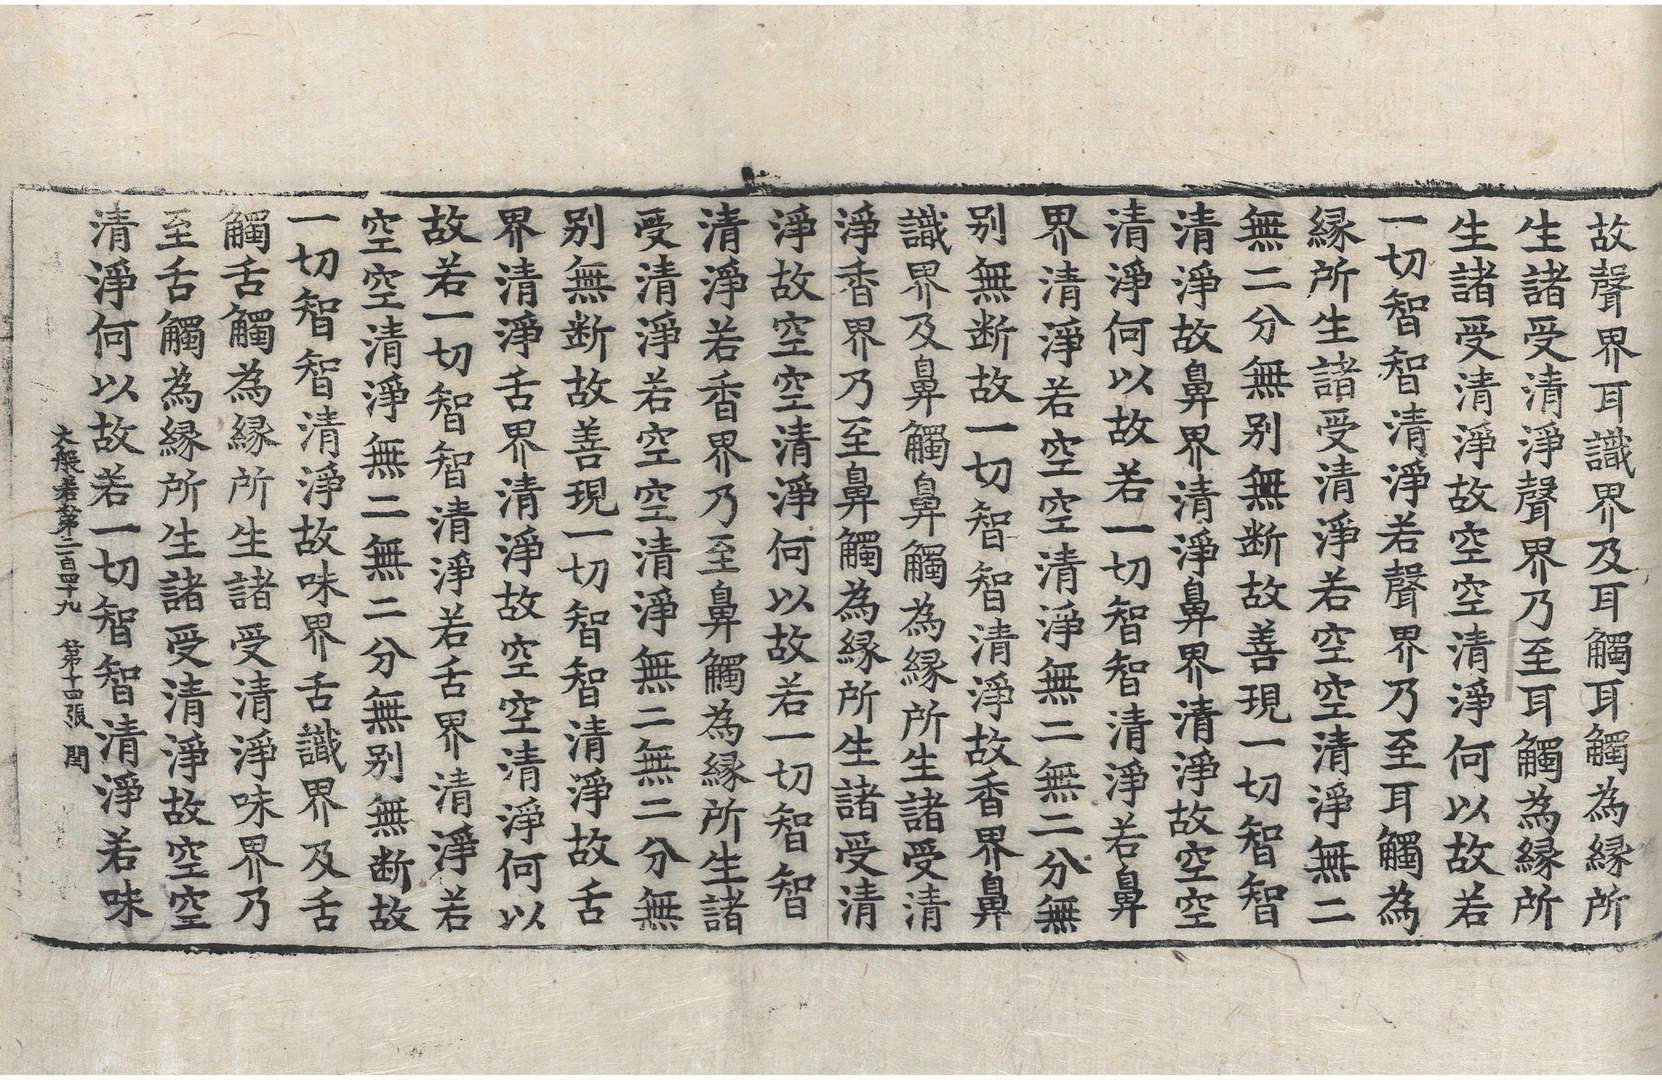 故聲界耳識界及耳觸耳觸為縁所
生諸受清淨聲界乃至耳觸為縁所
生諸受清淨故空空清淨何以故若
一切智智清淨若聲界乃至耳觸為
縁所生諸受清淨若空空清淨無二
無二分無别無断故善現一切智智
清淨故鼻界清淨鼻界清淨故空空
清淨何以故若一切智智清淨若鼻
界清淨若空空清淨無二無二分無
别無断故一切智智清淨故香界鼻
識界及鼻觸鼻觸為縁所生諸受清
淨香界乃至鼻觸為縁所生諸受清
淨故空空清淨何以故若一切智智
清淨若香界乃至鼻觸為縁所生諸
受清淨若空空清淨無二無二分無
别無断故善現一切智智清淨故舌
界清淨舌界清淨故空空清淨何以
故若一切智智清淨若舌界清淨若
空空清淨無二無二分無别無断故
一切智智清淨故味界舌識界及舌
觸舌觸為縁所生諸受清淨味界乃
至舌觸為縁所生諸受清淨故空空
清淨何以故若一切智智清淨若味
大般若第二百四十九 第十四張 閏